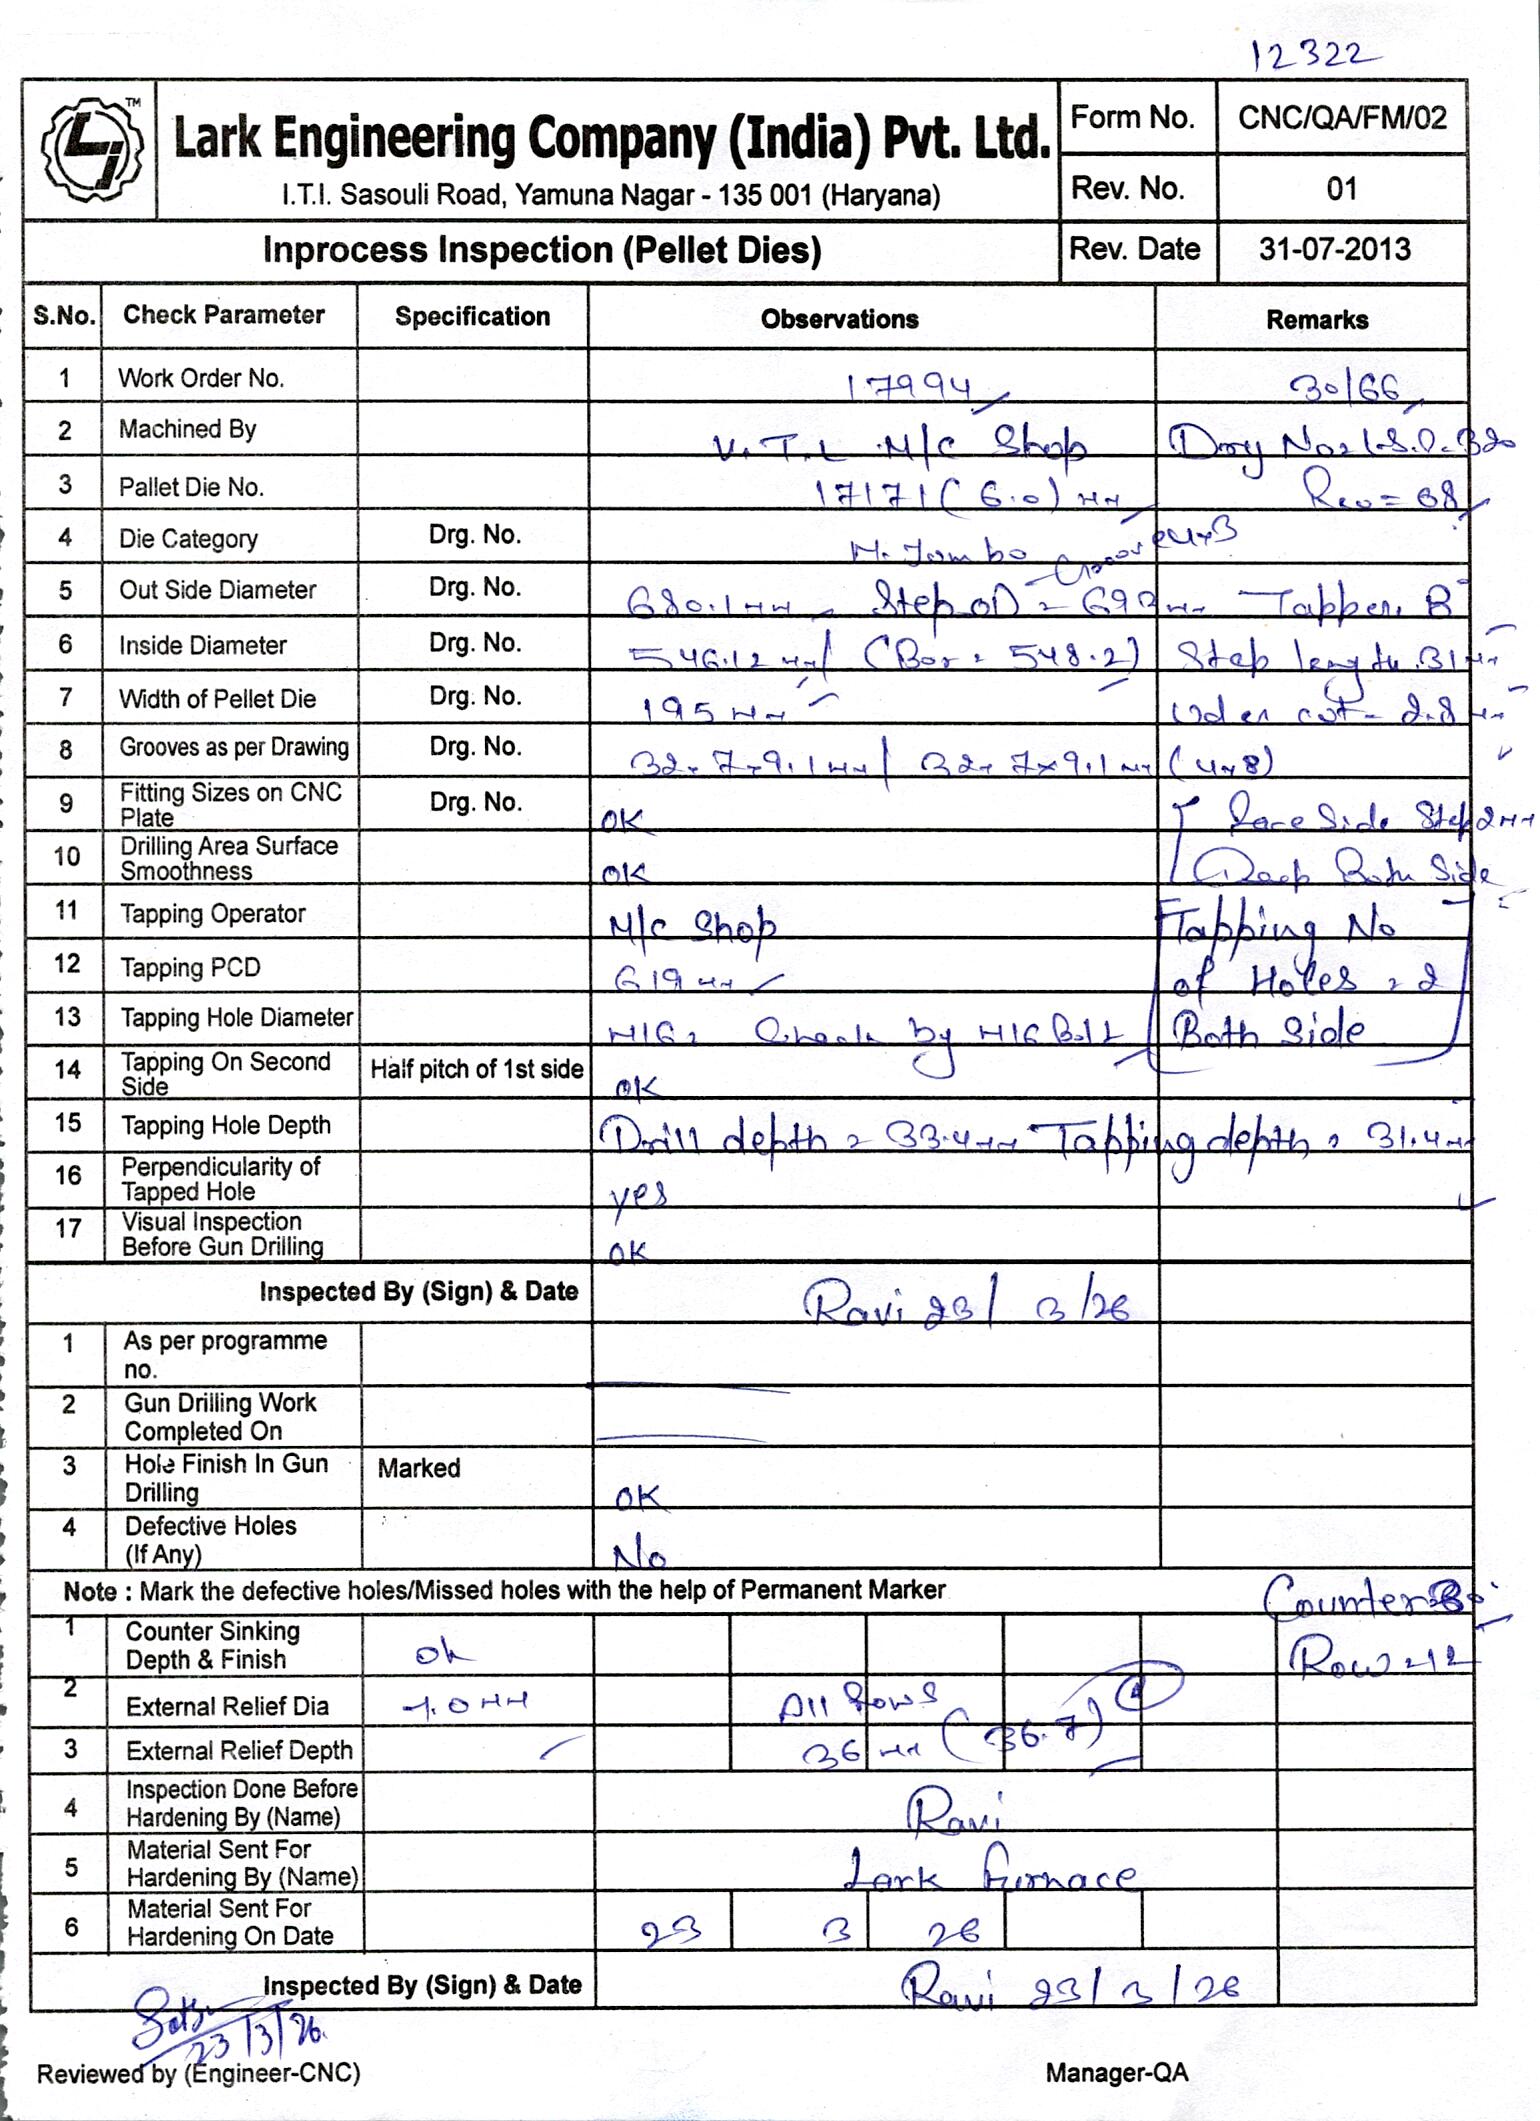 12322
TM
Lark Engineering Company (India) Pvt. Ltd.
I.T.I. Sasouli Road, Yamuna Nagar - 135 001 (Haryana)
Form No. CNC/QA/FM/02
Rev. No. 01
Inprocess Inspection (Pellet Dies) Rev. Date 31-07-2013
S.No. Check Parameter Specification Observations Remarks
1 Work Order No. 17994 30/66
2 Machined By V.T.L M/C Shop
3 Pallet Die No. 17171 (6.0) Rev = 08
4 Die Category Drg. No. M. Jumbo Groove
5 Out Side Diameter Drg. No. 680.1 mm Step OD = Tapper
6 Inside Diameter Drg. No. 546.12 mm (Bor = 548.2) Step length 31 mm
7 Width of Pellet Die Drg. No. 195 mm Under cut = 2.8 mm
8 Grooves as per Drawing Drg. No. 32 x 7 x 9.1 mm / 32 x 7 x 9.1 mm (4x8)
9 Fitting Sizes on CNC Plate Drg. No. OK Side Step 2 mm
10 Drilling Area Surface Smoothness OK Deep Both Side
11 Tapping Operator M/C Shop Tapping No
12 Tapping PCD 619 mm of Holes = 2
13 Tapping Hole Diameter M16 = Check by M16 Bolt Both Side
14 Tapping On Second Side Half pitch of 1st side OK
15 Tapping Hole Depth Drill depth = 33.4 mm Tapping depth = 31.4 mm
16 Perpendicularity of Tapped Hole yes
17 Visual Inspection Before Gun Drilling OK
Inspected By (Sign) & Date Ravi 23/3/26
1 As per programme no.
2 Gun Drilling Work Completed On
3 Hole Finish In Gun Drilling Marked OK
4 Defective Holes (If Any) No
Note : Mark the defective holes/Missed holes with the help of Permanent Marker Counter
1 Counter Sinking Depth & Finish ok Row = 12
2 External Relief Dia All Rows
3 External Relief Depth 36 mm (36.7)
4 Inspection Done Before Hardening By (Name) Ravi
5 Material Sent For Hardening By (Name) Lark Furnace
6 Material Sent For Hardening On Date 23 3 26
Inspected By (Sign) & Date Ravi 23/3/26
23/3/26
Reviewed by (Engineer-CNC) Manager-QA